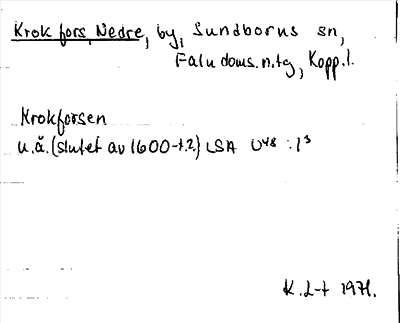 Krokfors, Nedre, by, Sundborns sn,
Falu doms.n.tg, Kopp.l.
Krokforsen
u.å. (slutet av 1600-t.?) LSA U48 : 1³
K.L-t 1971.